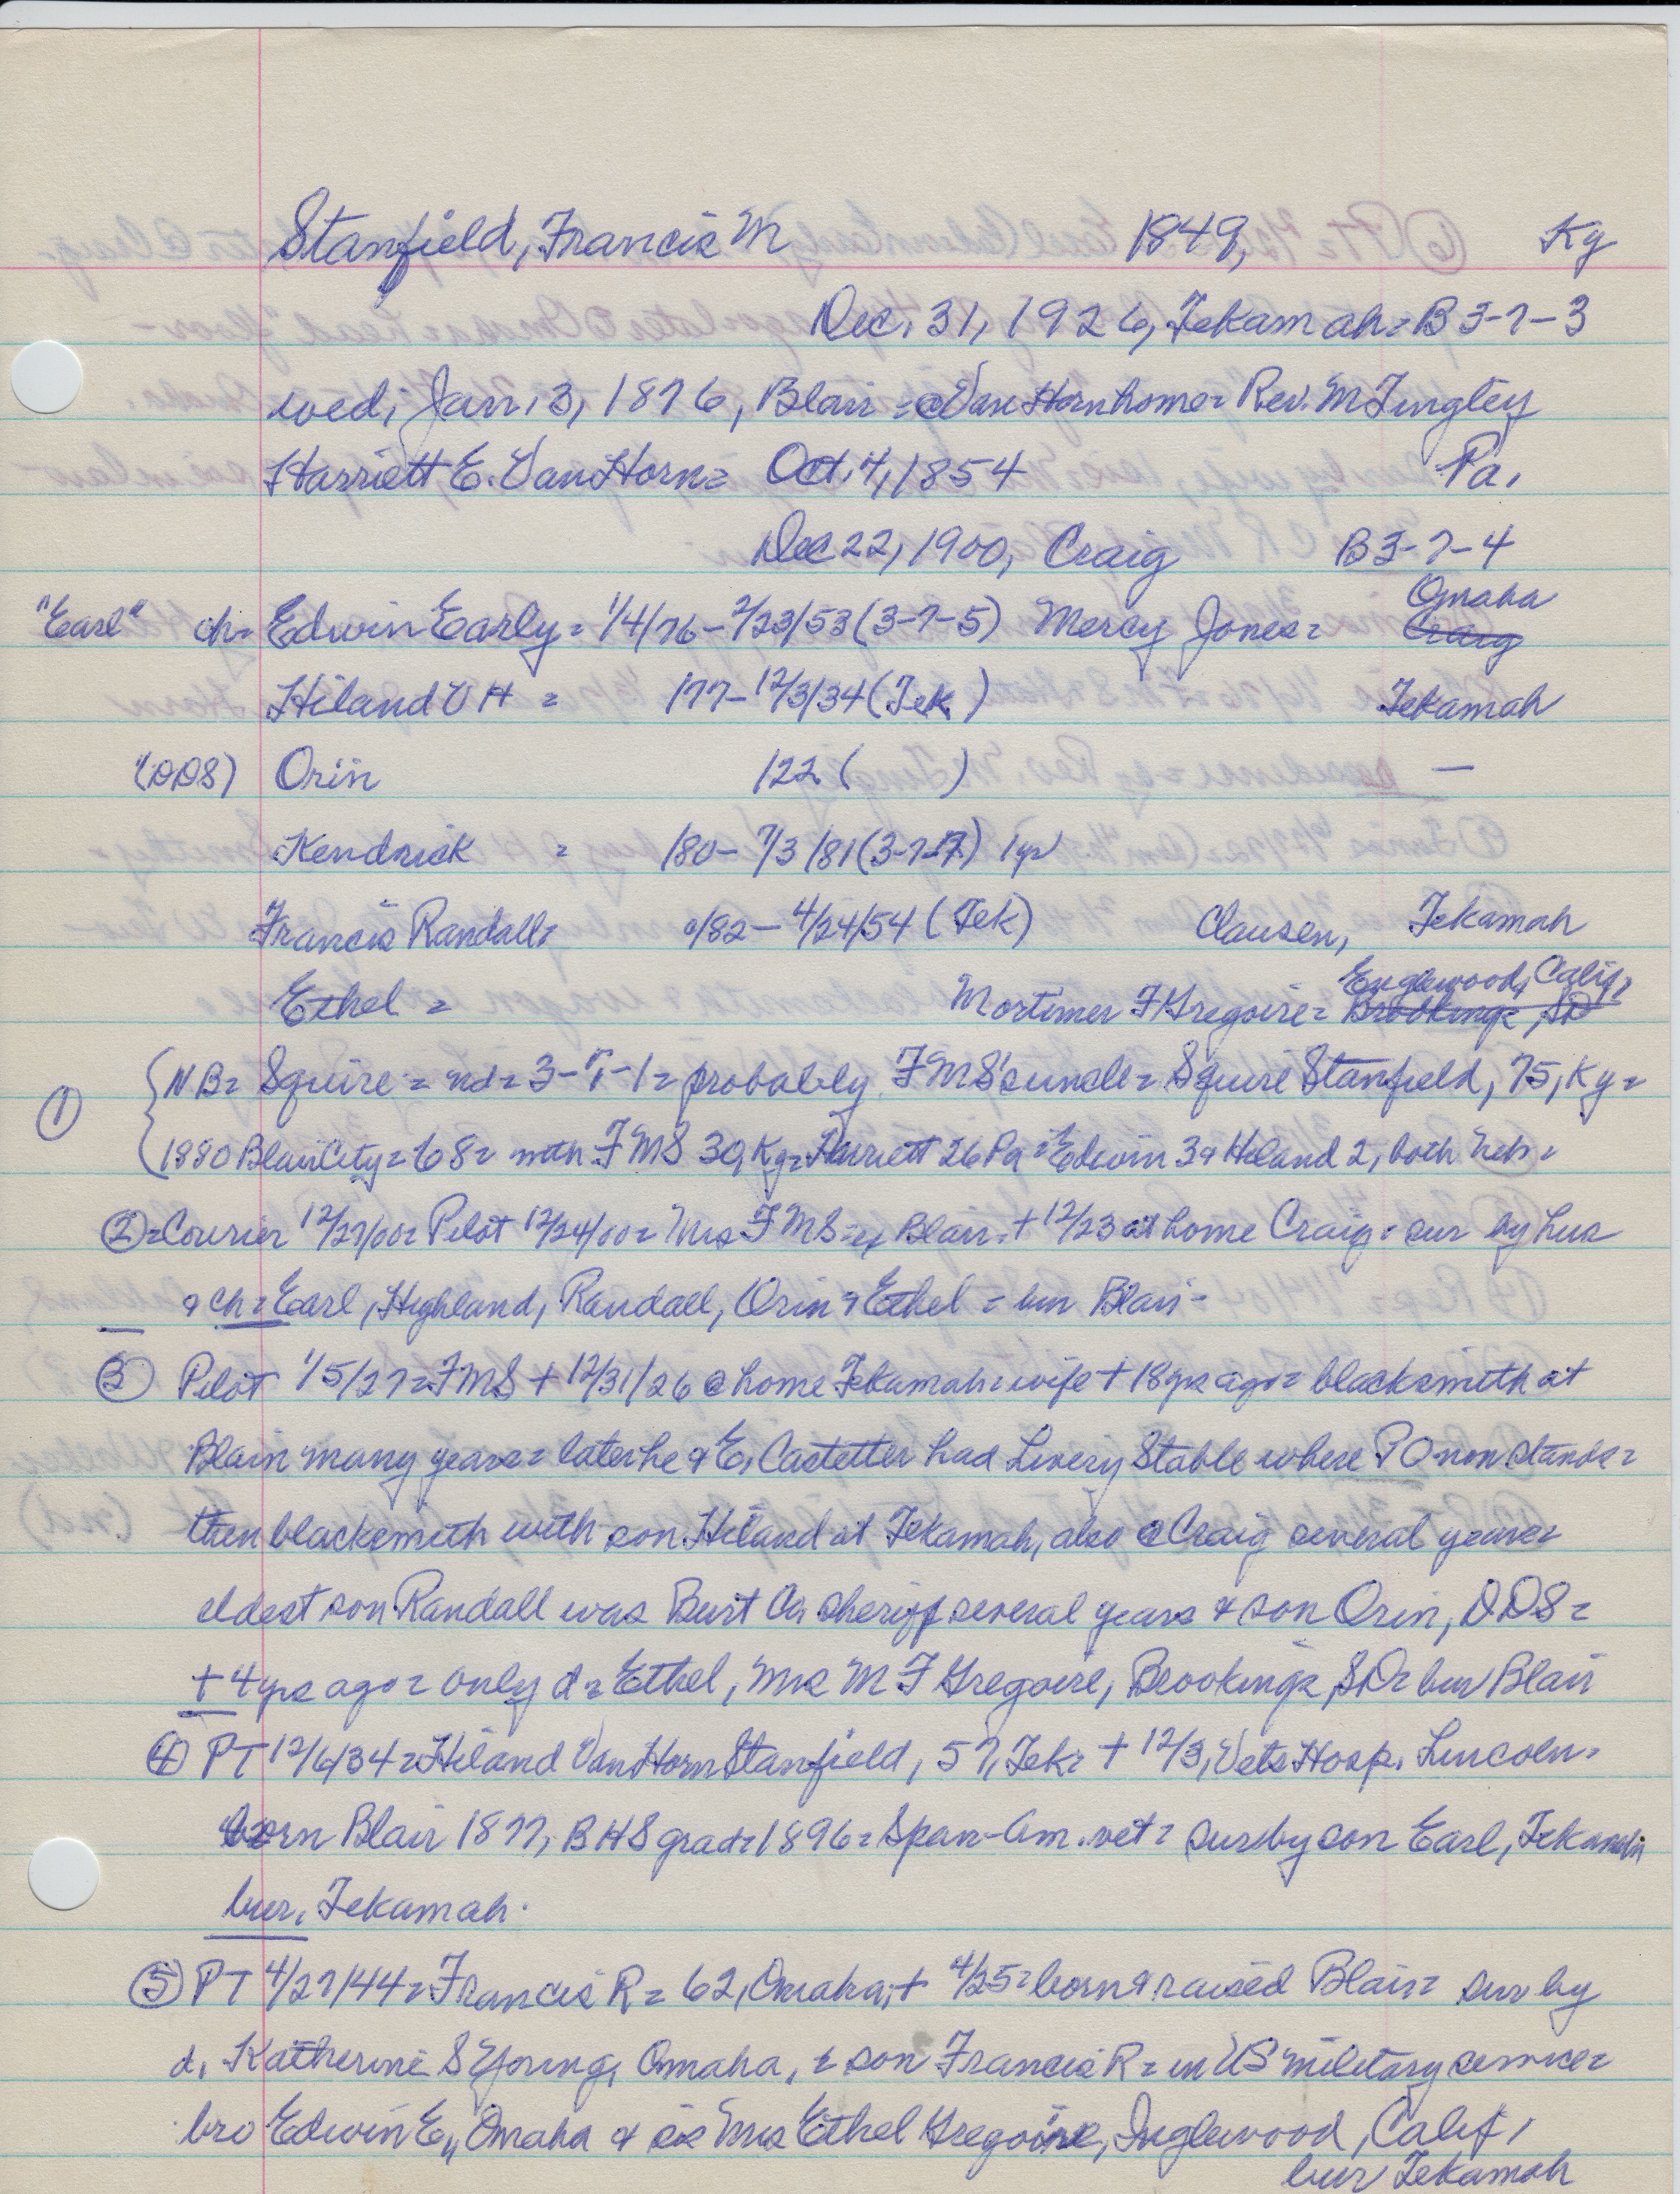 Stanfield, Francis M 1849, Ky
Dec. 31, 1926, Tekamah = B 3-7-3
wed; Jan. 3, 1876, Blair = @ Van Horn home = Rev. M Tingley
Harriett E. Van Horn = Oct. 4, 1854 Pa.
Dec 22, 1900, Craig B3-7-4
Omaha
"Earl" ch = Edwin Early = 1/4/76 - 2/23/53 (3-7-5) Mercy Jones = Craig
Hiland V H = /77 - 12/3/34 (Tek) Tekamah
(DDS) Orin /22 ( ) —
Kendrick = /80 - 7/3/81 (3-7-7) 1 yr
Francis Randall = /82 - 4/24/54 (Tek) Clausen, Tekamah
Englewood, Calif,
Ethel = Mortimer F Gregoire = Brookings, SD
① NB = Squire = nd = 3-7-1 = probably FMS's uncle = Squire Stanfield, 75, Ky =
1880 Blair City = 68 = with FMS 30, Ky = Harriett 26 Pa = Edwin 3 & Hiland 2, both Neb =
② = Courier 12/27/00 = Pilot 12/24/00 = Mrs FMS = of Blair = + 12/23 at home Craig = sur by hus
& ch = Earl, Highland, Randall, Orin & Ethel = bur Blair -
③ Pilot 1/5/27 = FMS + 12/31/26 @ home Tekamah = wife + 18 yrs ago = blacksmith at
Blair many years = later he & E. Castetter had Livery Stable where PO now stands =
then blacksmith with son Hiland at Tekamah, also @ Craig several years =
eldest son Randall was Burt Co. sheriff several years & son Orin, DDS =
+ 4 yrs ago = only d = Ethel, Mrs M F Gregoire, Brookings, SD = bur Blair
④ PT 12/6/34 = Hiland Van Horn Stanfield, 57, Tek = + 12/3, Vets Hosp. Lincoln =
born Blair 1877, BHS grad = 1896 = Span-Am. vet = sur by son Earl, Tekamah
bur. Tekamah.
⑤ PT 4/27/44 = Francis R = 62, Omaha, + 4/25 = born & raised Blair = sur by
d. Katherine S Young, Omaha, & son Francis R = in US military service =
bro Edwin E., Omaha & sis Mrs Ethel Gregoire, Inglewood, Calif,
bur Tekamah